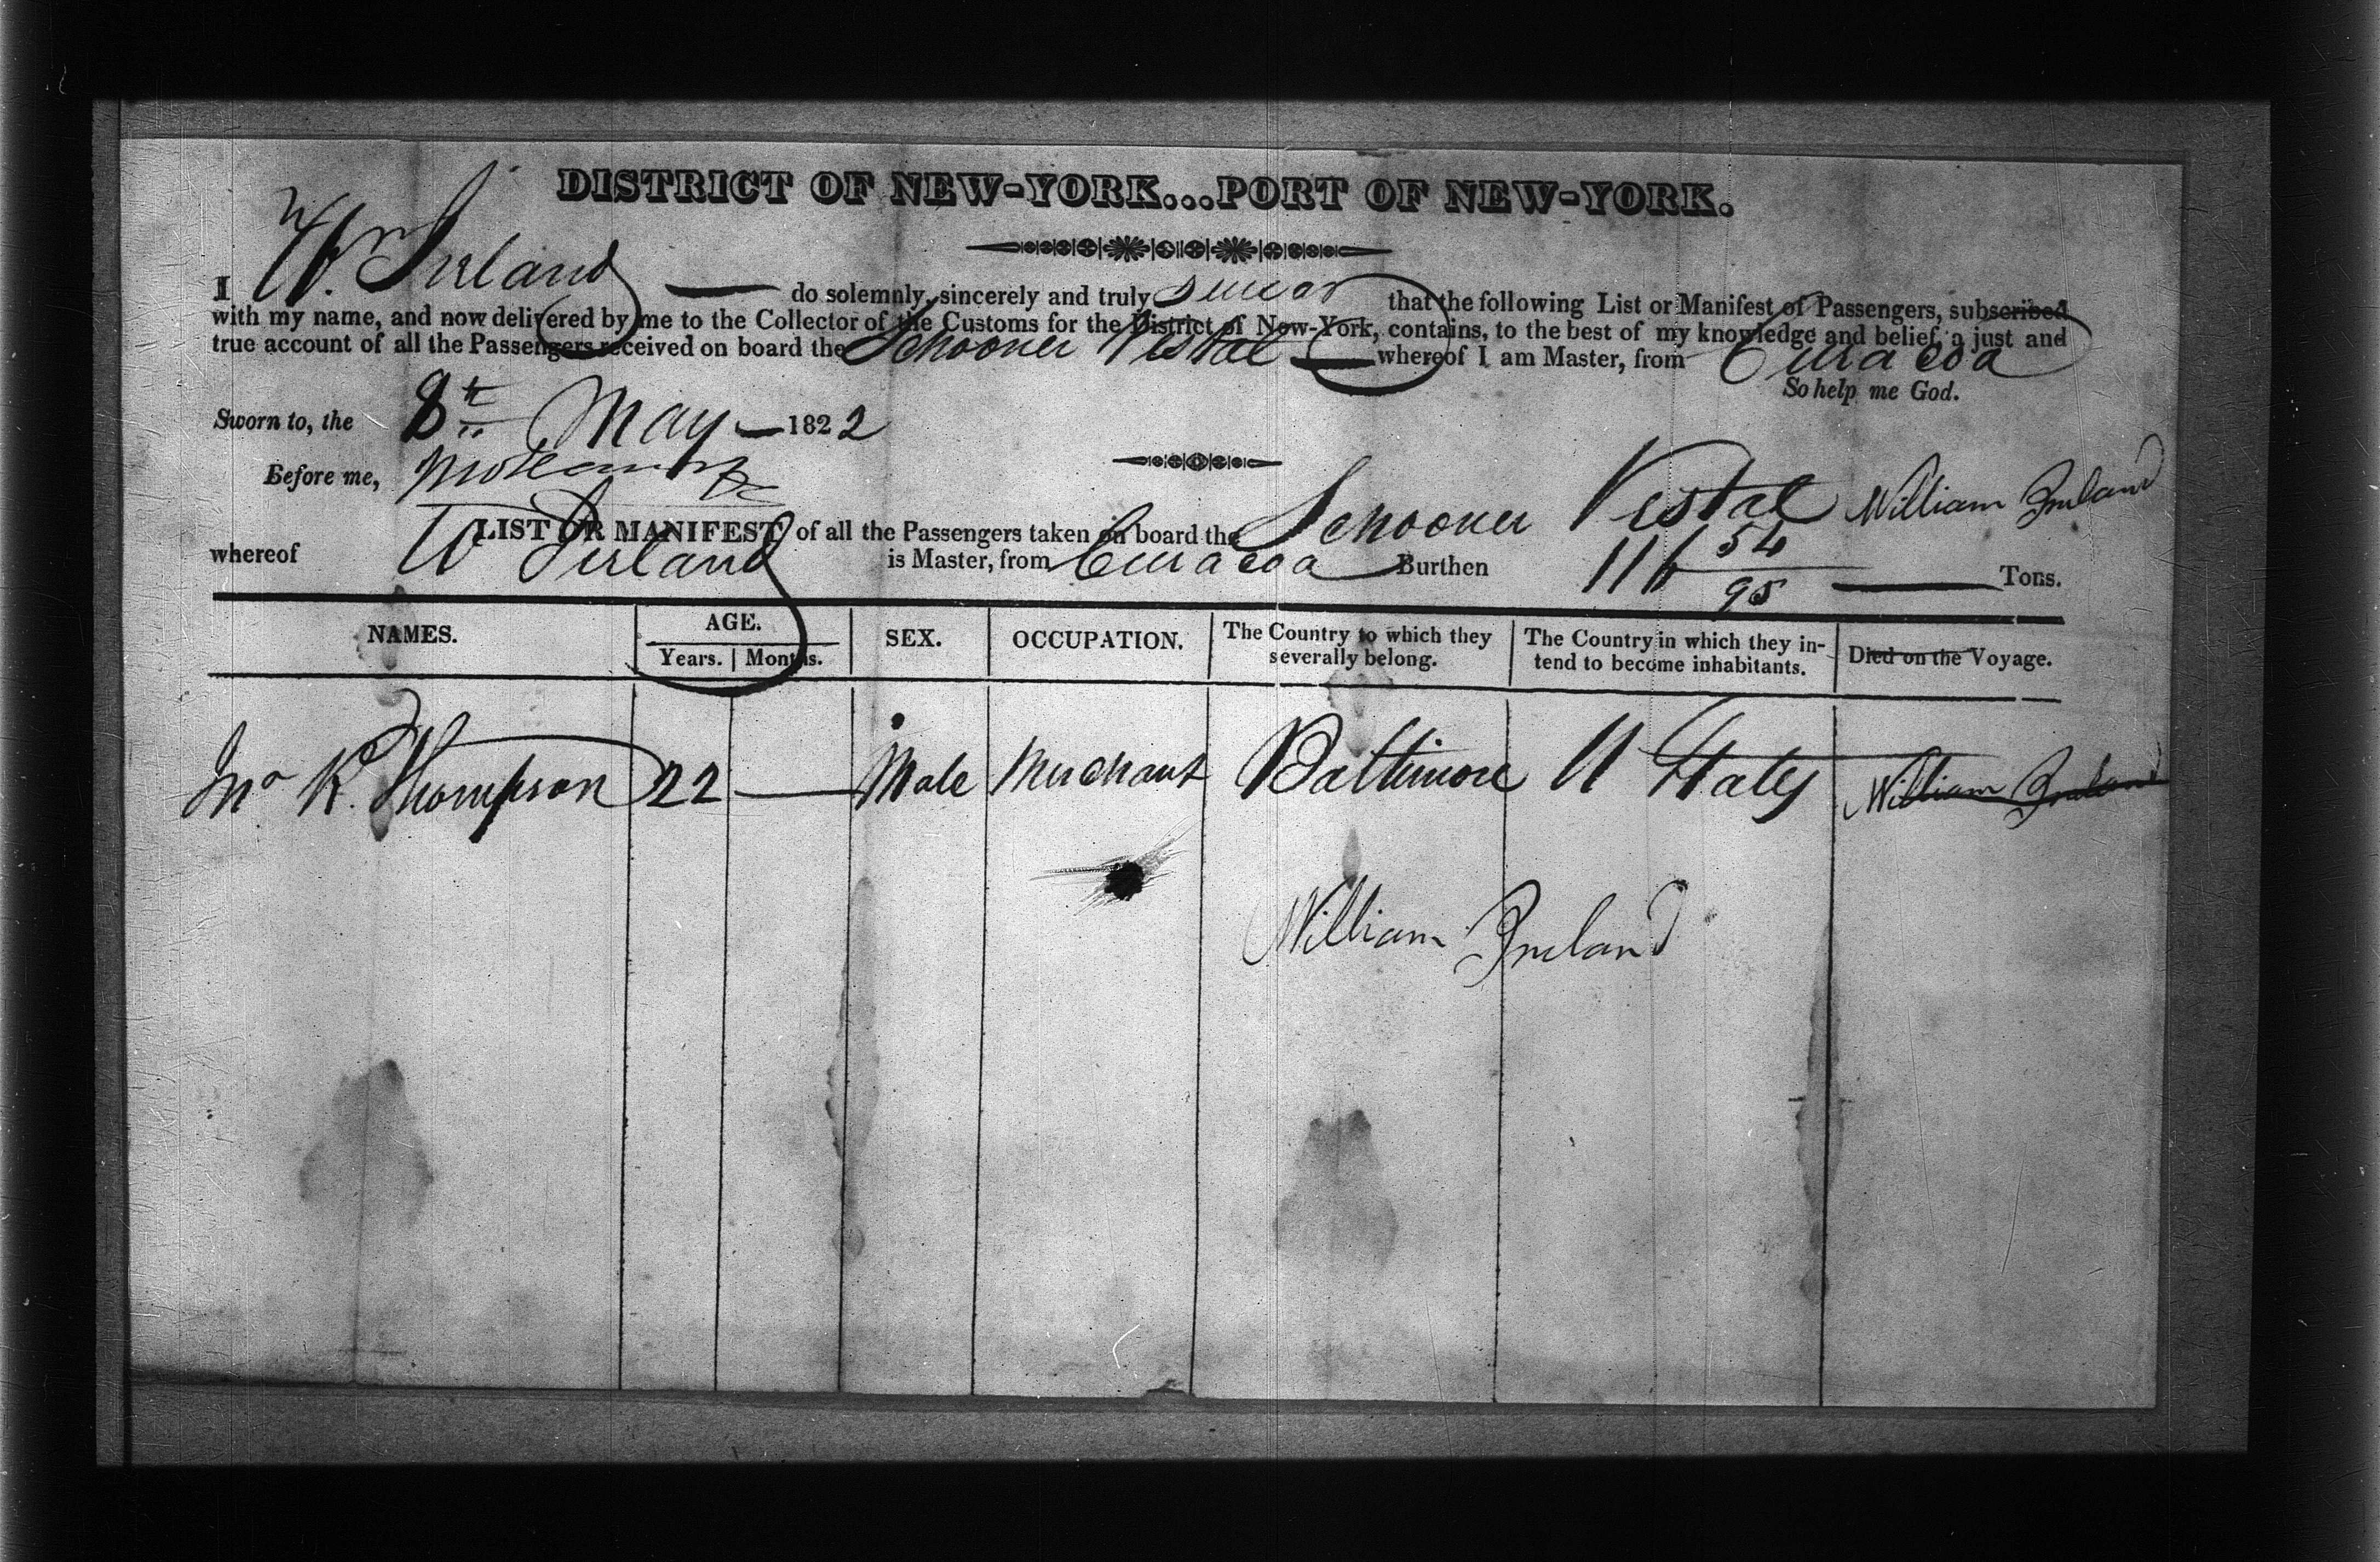 DISTRICT OF NEW-YORK...PORT OF NEW-YORK.
I Wm. Irland — do solemnly, sincerely and truly swear that the following List or Manifest of Passengers, subscribed
with my name, and now delivered by me to the Collector of the Customs for the District of New-York, contains, to the best of my knowledge and belief, a just and
true account of all the Passengers received on board the Schooner Vestal — whereof I am Master, from Curacoa
So help me God.
Sworn to, the 8th May — 1822
Before me,
William Ireland
LIST OR MANIFEST of all the Passengers taken on board the Schooner Vestal
whereof W Irland is Master, from Curacoa Burthen 116 54/95 — Tons.
NAMES. AGE. SEX. OCCUPATION. The Country to which they severally belong. The Country in which they intend to become inhabitants. Died on the Voyage.
Years. Months.
K. Thompson 22 — Male Merchant Baltimore U States William Ireland
William Ireland